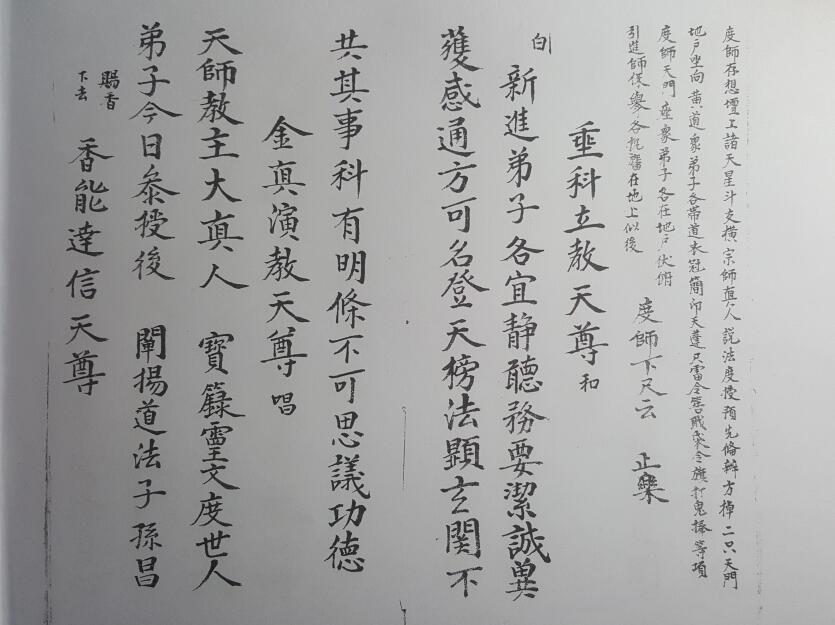 度師存想壇上諸天星斗支橫宗師真人説法度授預先俻辦方棹二只天門
地戶坐向黄道衆弟子各帶道衣冠簡印天蓬尺雷令誓戒策令旗打鬼棒等項
度師天門座衆弟子各在地戶伏俯
引進師保舉各執籌在地上似後
度師下尺云 正樂
垂科立教天尊 和
白 新進弟子各宜静聽務要潔誠兾
獲感通方可名登天榜法顯玄関不
共其事科有明條不可思議功德
金真演教天尊 唱
天師教主大真人 寶籙靈文度世人
弟子今日叅授後 闡揚道法子孫昌
賜香下去 香能達信天尊